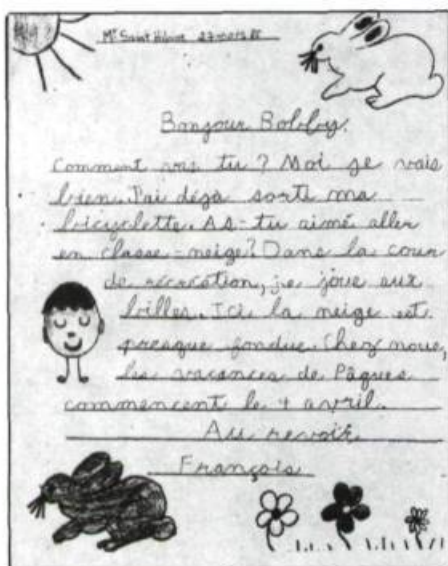 Mt Saint Hilaire 27 mars
Bonjour Bobby.
Comment vas tu? Moi je vais
bien. J'ai déjà sorti ma
bicyclette. As-tu aimé aller
en classe-neige? Dans la cour
de récréation, je joue aux
billes. Ici la neige est
presque fondue. Chez nous,
les vacances de Pâques
commencent le 4 avril.
Au revoir
François